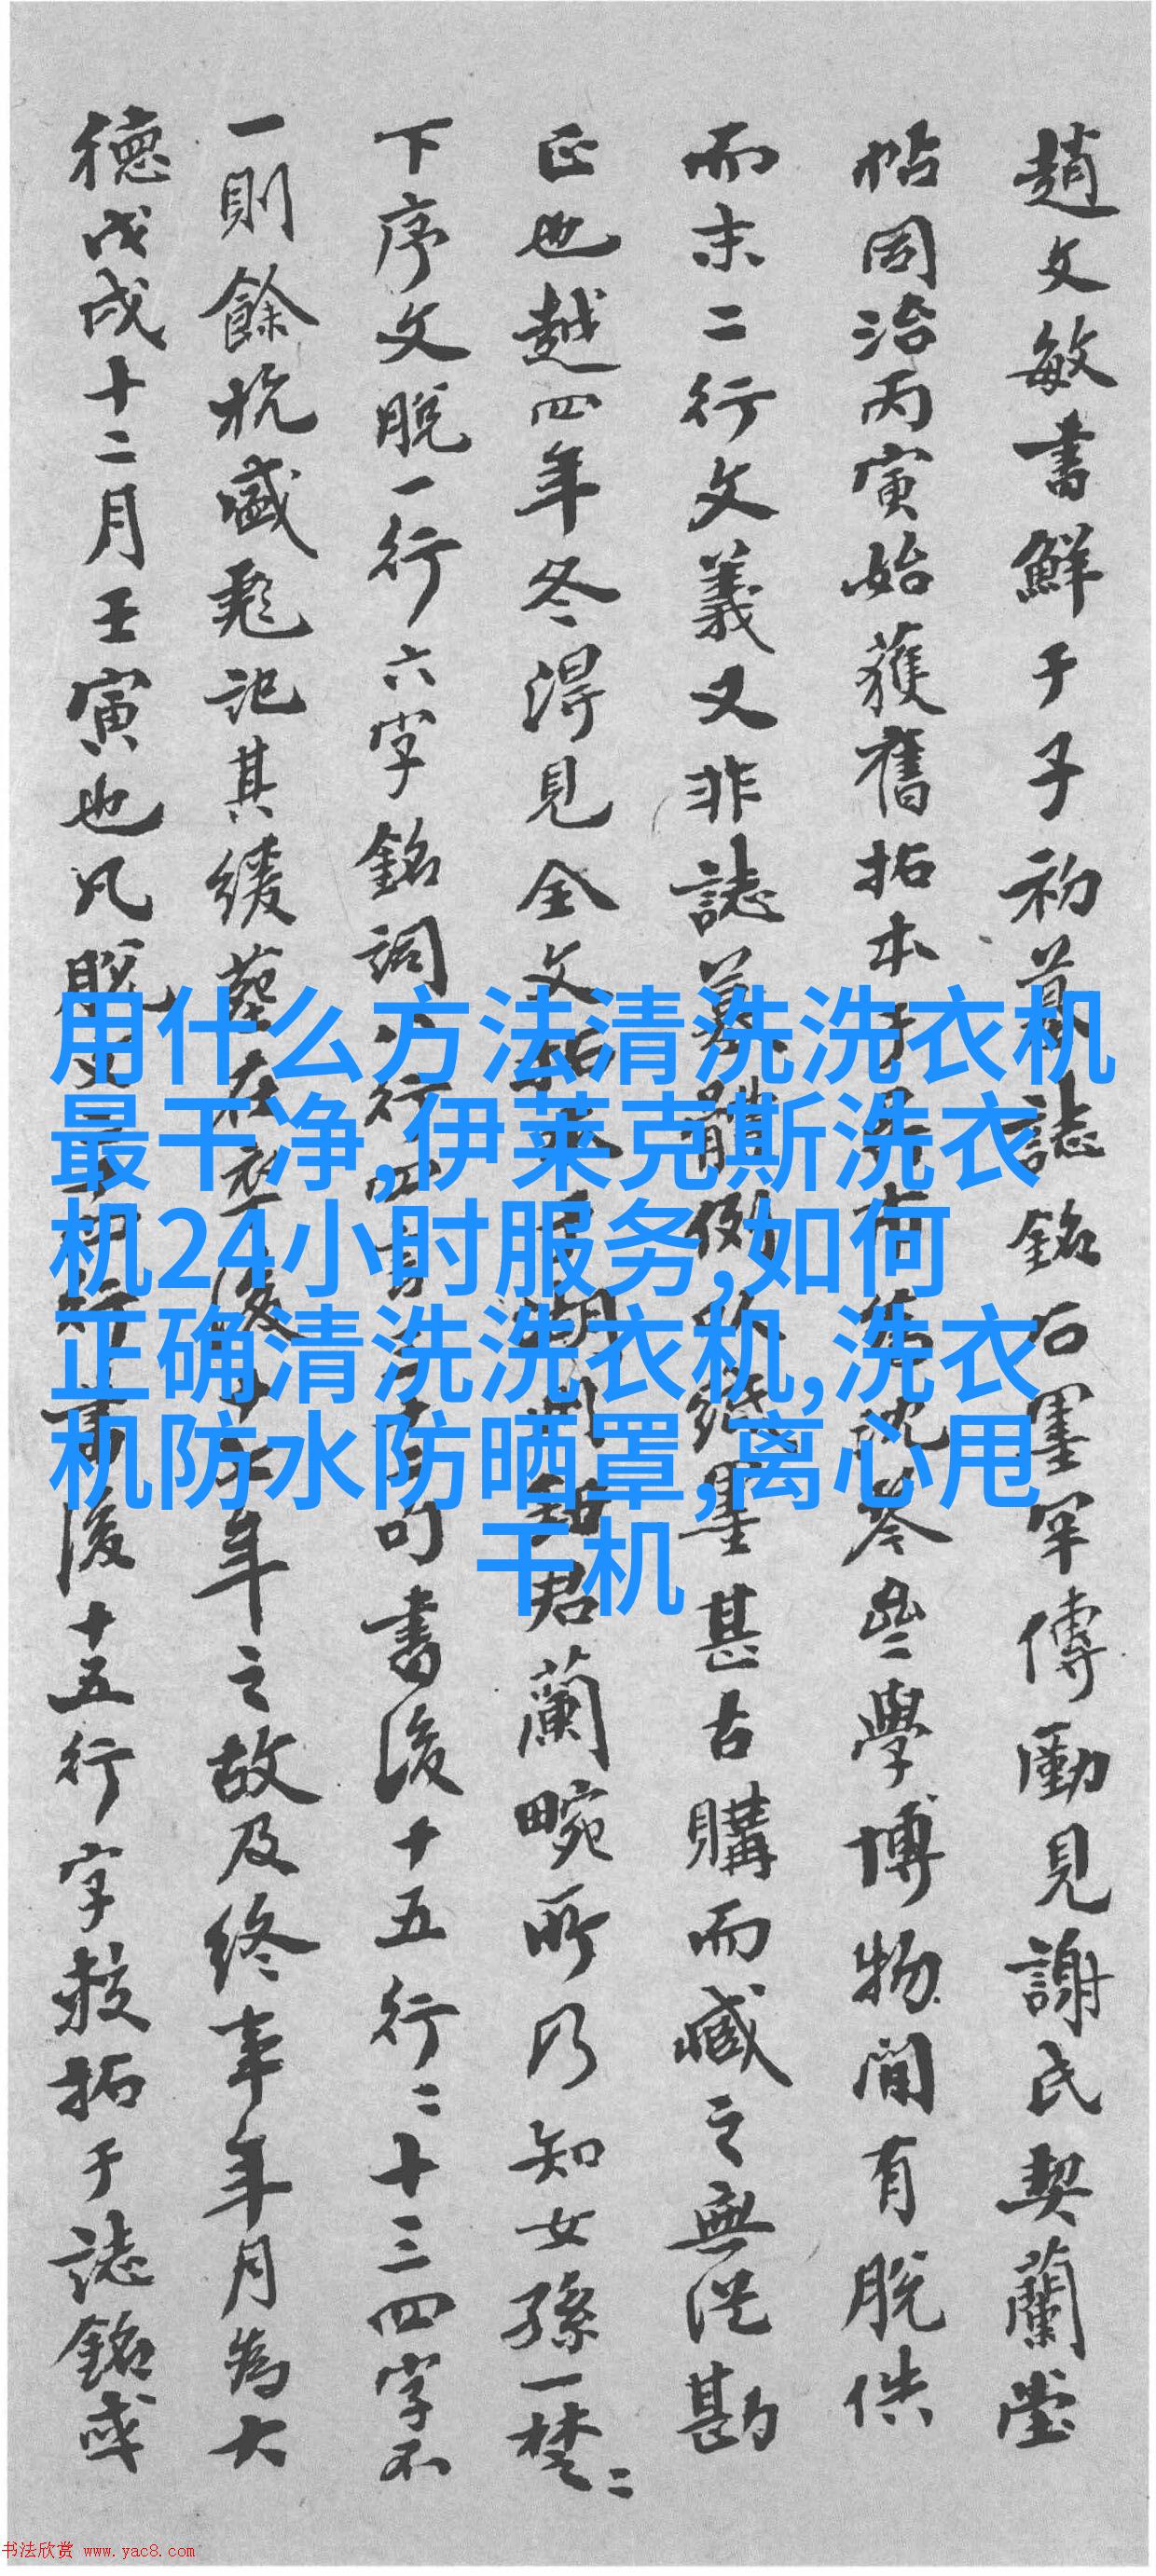 趙文敏書鮮于子初墓誌銘石墨罕傳勵見謝氏契蘭堂
帖同治丙寅始獲舊拓本
學博物閒有脫佚
而末二行文義又非誌墓體例
墨甚古購而臧之無從勘
正也越四年冬得見全文拓
君蘭畹所乃知女孫一楚二
下序文脫一行六字銘詞八行四
句書後十五行二十三四字不
一則餘杭盛彪記其緩葬在
年之故及終事年月為大
德戊戌十二月壬寅也凡脫
後十五行字裝拓于誌銘或
用什么方法清洗洗衣机
最干净,伊莱克斯洗衣
机24小时服务,如何
正确清洗洗衣机,洗衣
机防水防晒罩,离心甩
干机
书法欣赏 www.yac8.com